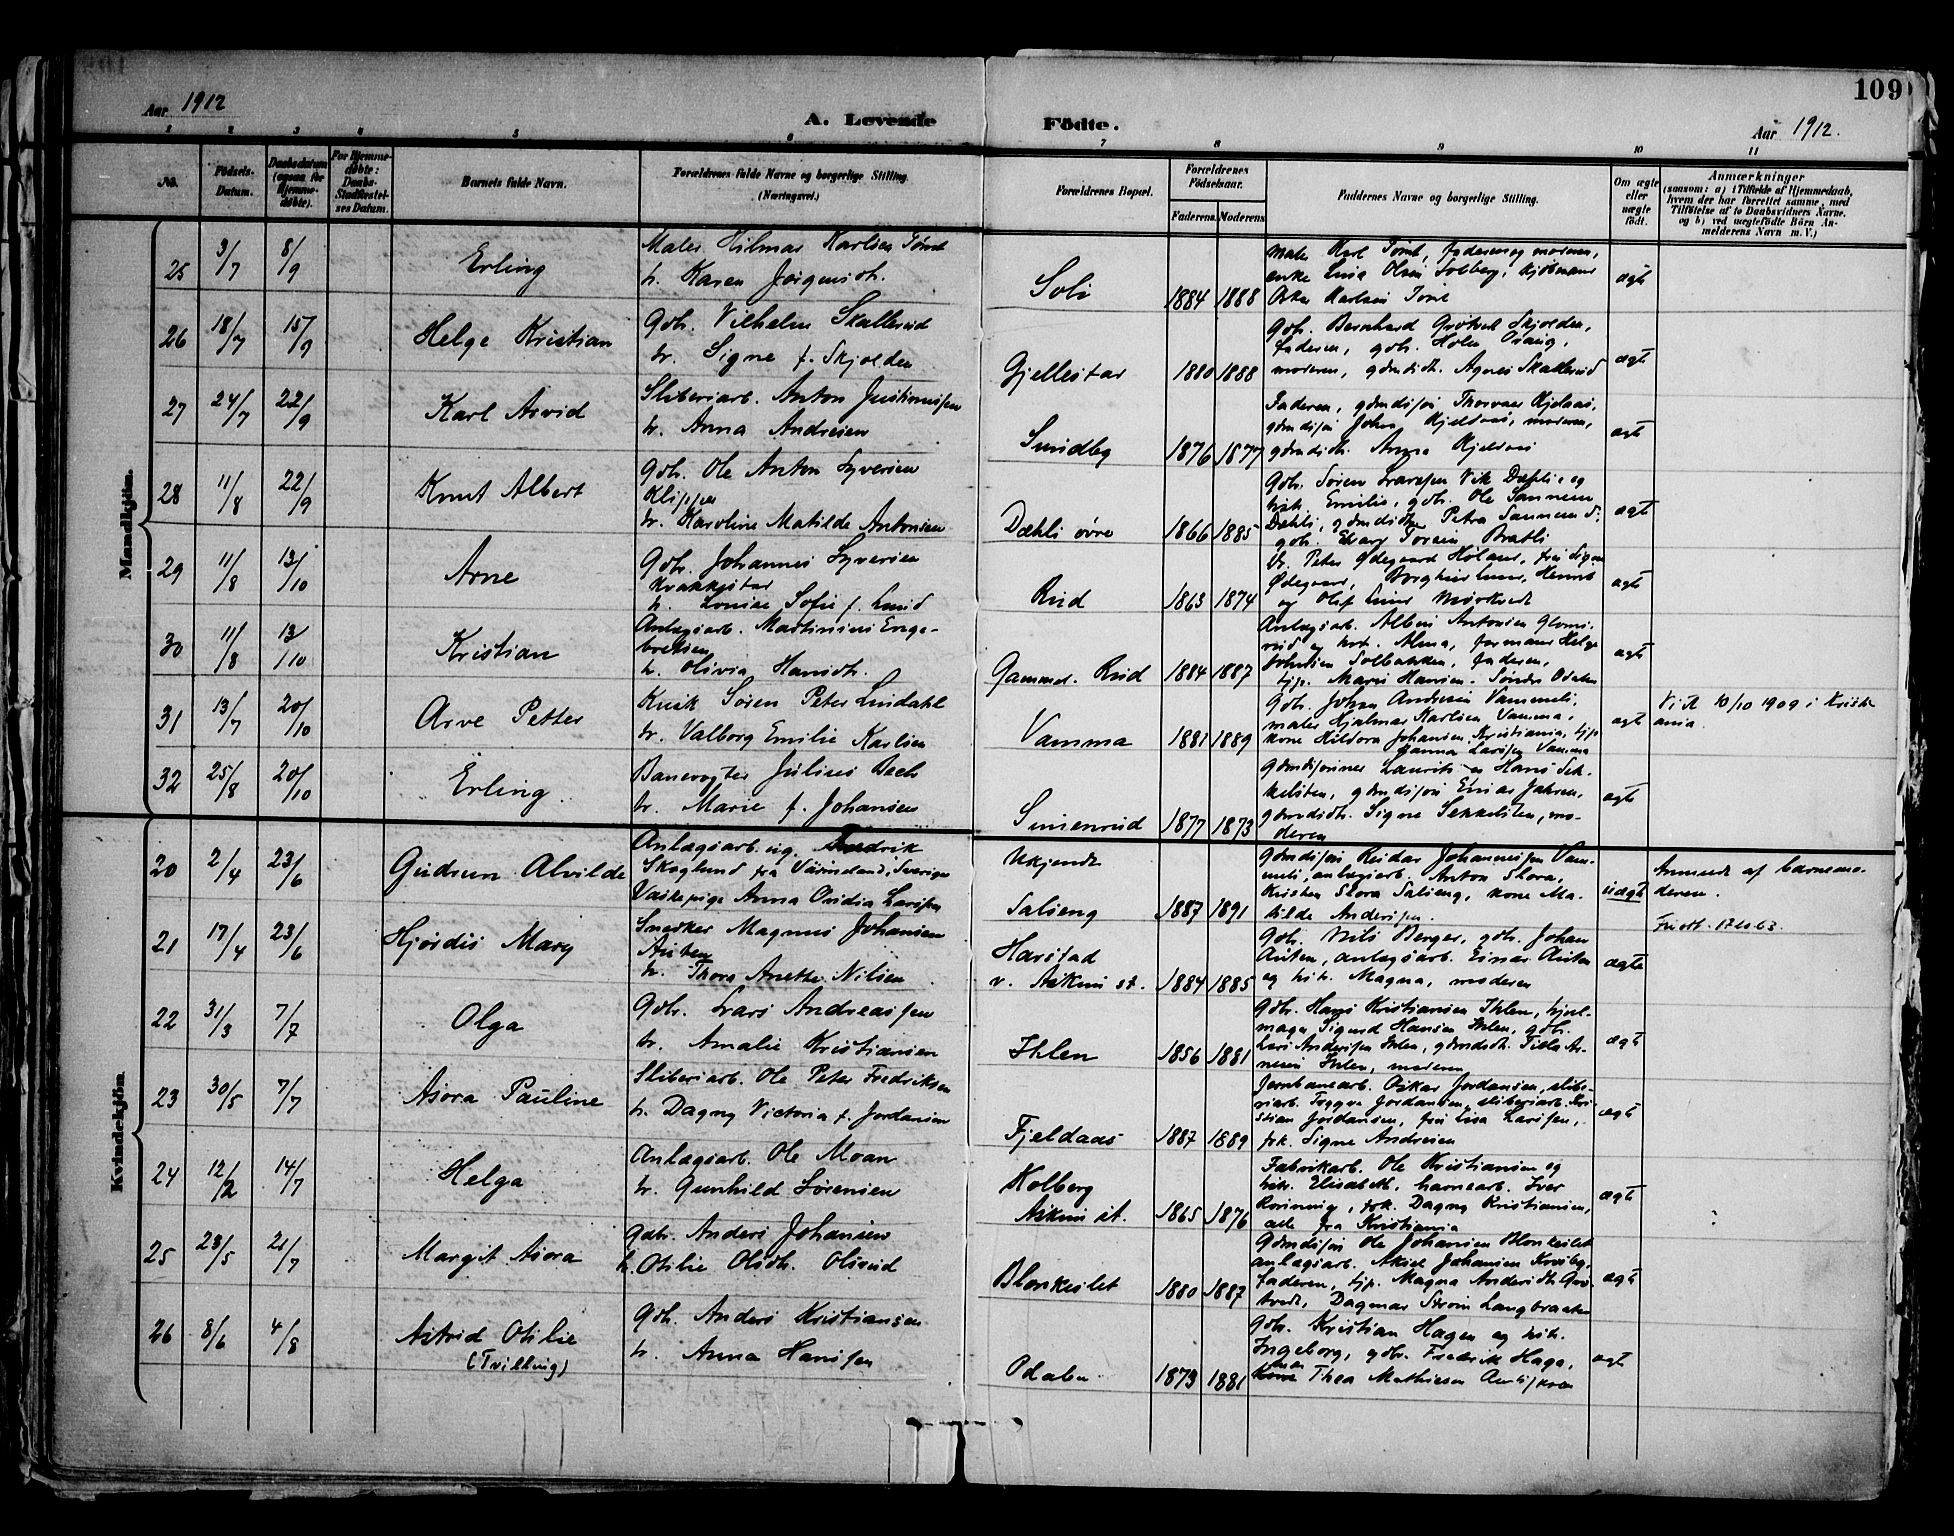 109
Aar 1912
A. Levende
Födte.
Aar 1912.
1 2 3 4 5 6 7 8 9 10 11
No.
Födsels-
Datum.
Daabsdatum
(ogsaa for
Hjemme-
döbte).
For Hjemme-
döbte:
Daabs-
Stadfæstel-
ses Datum.
Barnets fulde Navn.
Forældrenes fulde Navne og borgerlige Stilling.
(Næringsvei.)
Forældrenes Bopæl.
Forældrenes
Födselsaar.
Faderens. Moderens.
Faddernes Navne og borgerlige Stilling.
Om ægte
eller
uægte
födt.
Anmærkninger
(saasom: a) i Tilfælde af Hjemmedaab,
hvem der har forrettet samme, med
Tilföielse af to Daabsvidners Navne,
og b) ved uægtefödte Börn An-
melderens Navn m. V.)
Mandkjön.
25 3/7 8/9
Erling
Maler Hilmar Karlsen Tømt
h. Karen Jörgensdt.
Soli
1884 1888
Maler Karl Tömt, faderen og moderen,
enke Lina Olsen Solberg, kjøbmand
Oskar Karlsen Tömt
ægte
26 18/7 15/9
Helge Kristian
Gdb. Vilhelm Skallerud
h. Signe f. Skjolden
Gjellestad
1880 1888
Gdb. Bernhard Grötvedt Skjolden,
faderen, gdb. Holm Osaug,
moderen, gdmdsdt. Agnes Skallerud
ægte
27 24/7 22/9
Karl Arvid
Sliberiarb. Anton Justinussen
h. Anna Andresen
Sundby
1876 1877
Faderen, gdmdssøn Thorvald Kjelaas,
gdmdssøn Johs. Kjelaas, moderen,
gdmdsdt. Anna Kjelaas
ægte
28 11/8 22/9
Knut Albert
Gdb. Ole Anton Syversen
Klipper
h. Karoline Matilde Antonsen
Dæhli övre
1866 1885
Gdb. Søren Larssen Vik Dæhlie og
hst. Emilie, gdb. Ole Sannem
Dæhli, gdmdsdtr Petra Sannem
gdb. Edvard Torsen Bratli
ægte
29 11/8 13/10
Arne
Gdb. Johannes Syversen
Kvakkestad
h. Louise Sofie f. Lund
Rud
1863 1874
Peter Ødegaard Holand, fru Signe
Ødegaard, Borghild Lund, Henrik
og Olaf Lund Mørkved
ægte
30 11/8 13/10
Kristian
Anlægsarb. Martinius Enge-
bretsen
h. Olivia Hansdt.
Gammel. Rud
1884 1887
Anlægsarb. Albin Antonsen Gloms-
rud og hst. Alma, formand Helge
Johnsen Solbakken, faderen,
tjp. Marie Hansen. Søndre Odalen
ægte
31 13/7 20/10
Arve Petter
Kusk Søren Peter Lindahl
h. Valborg Emilie Karlsen
Vamma
1881 1889
Gdb. Johan Andresen Vammeli,
maler Hjalmar Karlsen Vamma,
kone Hildora Johansen Kristiania, tjp
Hanna Larsen Vamma
ægte
Viet 10/10 1909 i Kristi-
ania.
32 25/8 20/10
Erling
Banevogter Julius Bech
h. Marie f. Johansen
Simenrud
1877 1873
Gdmdssønner Laurits og Hans Sek-
kelsten, gdmdssøn Einar Jahren,
gdmdsdt. Signe Sekkelsten, mo-
deren
ægte
Kvindekjön.
20 2/4 23/6
Gudrun Alvilde
Anlægsarb. ug. Fredrik
Skoglund fra Värmeland, Sverige
Vaskepige Anna Ovidia Larssen
Ukjendt
Salseng
1887 1891
Gdmdssøn Reidar Johannessen Vam-
meli, anlægsarb. Anton Slora,
Kristen Slora Salseng, kone Ma-
tilde Anderssen.
uægte
Anmeldt af barnemo-
deren.
21 17/4 23/6
Hjørdis Mary
Snedker Magnus Johansen
Auten
h. Thora Anette Nilsen
Harstad
v. Askim st.
1884 1885
Gdb. Nils Berger, gdb. Johan
Auten, anlægsarb. Einar Auten
og hst. Magna, moderen
ægte
22 31/3 7/7
Olga
Gdb. Lars Andreassen
h. Amalie Kristiansen
Ihlen
1856 1881
Gdb. Hans Kristiansen Ihlen, hjul-
mager Sigurd Hansen Ihlen, gdb.
Lars Anderssen Ihlen, gdmdsdt. Tilla Ar-
nesen Ihlen, moderen
ægte
23 30/5 7/7
Asora Pauline
Sliberiarb. Ole Peter Fredriksen
h. Dagny Victoria f. Jordansen
Fjeldaas
1887 1889
Jernbanearb. Oskar Jordansen, slibe-
riarb. Trygve Jordansen, sliberiarb. Kri-
stian Jordansen, fru Lisa Larssen,
frk. Signe Andresen
ægte
24 12/2 14/7
Helga
Anlægsarb. Ole Moan
h. Gunhild Sørensen
Kolberg
Askim st.
1865 1876
Fabrikarb. Ole Kristiansen og
hst. Elisabeth, havnearb. Iver
Rønning, frk. Dagny Kristiansen,
alle fra Kristiania
ægte
25 23/5 21/7
Margit Asora
Gdb. Anders Johansen
h. Otilie Olsdt. Olsrud
Blonkeslet
1880 1887
Gdmdssøn Ole Johansen Blonkeslet
anlægsarb. Aksel Johansen Krosby,
faderen, tjp. Magna Andersdt. Grø-
tvedt, Dagmar Strøm Langbraaten
ægte
26 8/6 4/8
Astrid Otilie
(Tvilling)
Gdb. Anders Kristiansen
h. Anna Hanssen
Odalen
1873 1881
Gdb. Kristian Hagen og hst.
Ingeborg, gdb. Fredrik Haga,
Thea Mathiesen
ægte